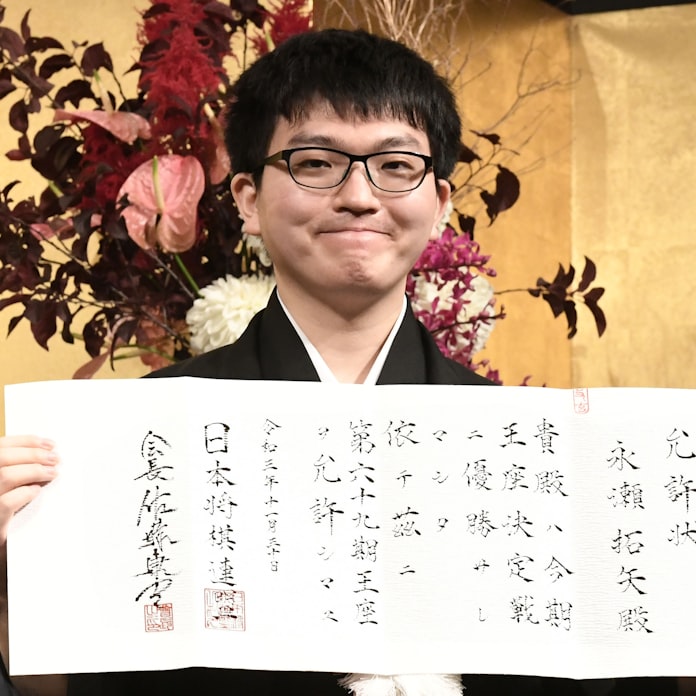 允許状
永瀬拓矢殿
貴殿ハ今期
王座決定戦
ニ優勝サレ
マシタ
依テ茲ニ
第六十九期王座
ヲ允許シマス
令和三年十一月三十日
日本将棋連盟
会長佐藤康光